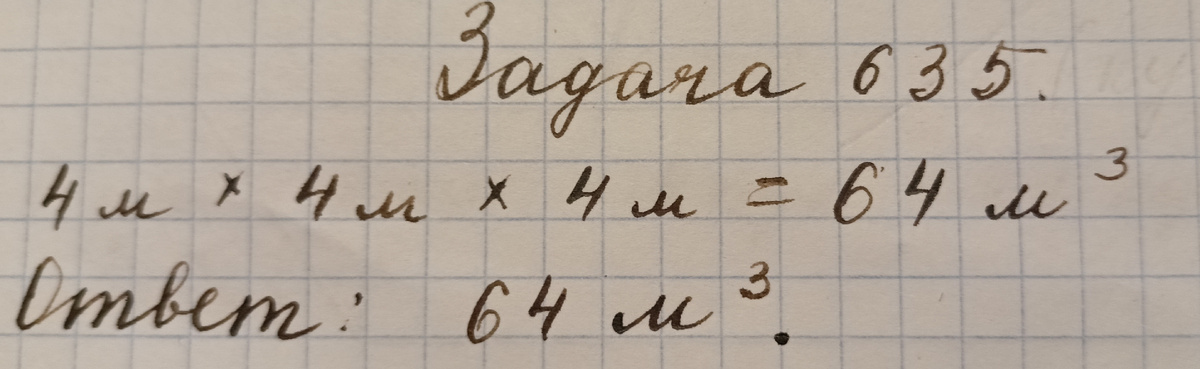 Задача 635.
4 м × 4 м × 4 м = 64 м³
Ответ: 64 м³.